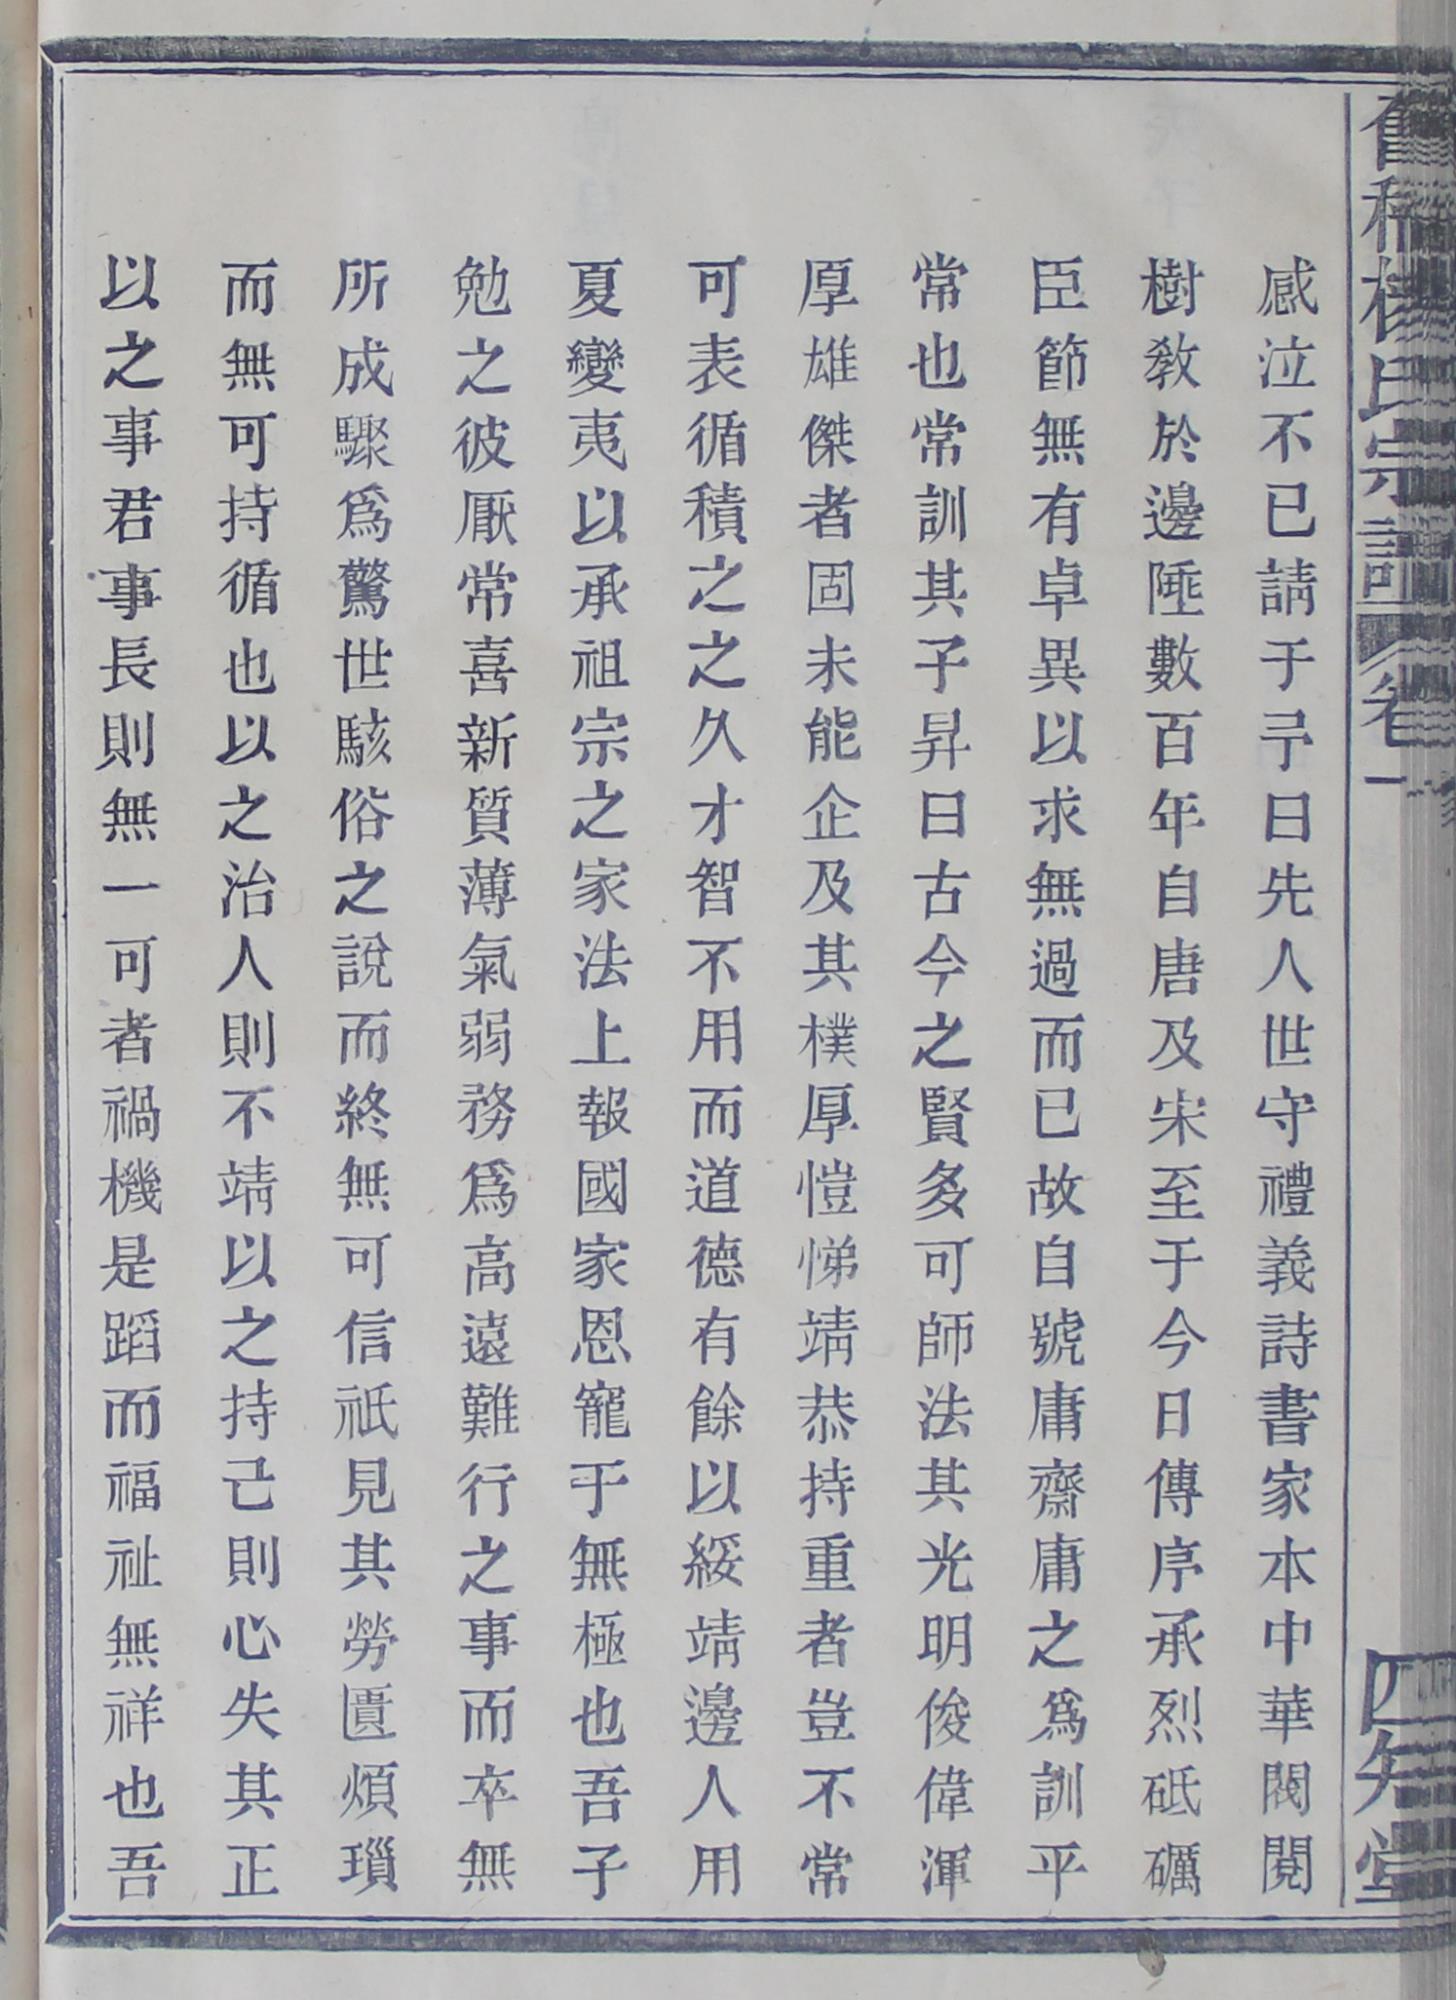 舊稱楊氏宗譜 卷一 四知堂
感泣不已請于予曰先人世守禮義詩書家本中華閥閱
樹教於邊陲數百年自唐及宋至于今日傳序承烈砥礪
臣節無有卓異以求無過而已故自號庸齋庸之爲訓平
常也常訓其子昇曰古今之賢多可師法其光明俊偉渾
厚雄傑者固未能企及其樸厚愷悌靖恭持重者豈不常
可表循積之之久才智不用而道德有餘以綏靖邊人用
夏變夷以承祖宗之家法上報國家恩寵于無極也吾子
勉之彼厭常喜新質薄氣弱務爲高遠難行之事而卒無
所成驟爲驚世駭俗之說而終無可信祇見其勞匱煩瑣
而無可持循也以之治人則不靖以之持己則心失其正
以之事君事長則無一可者禍機是蹈而福祉無祥也吾